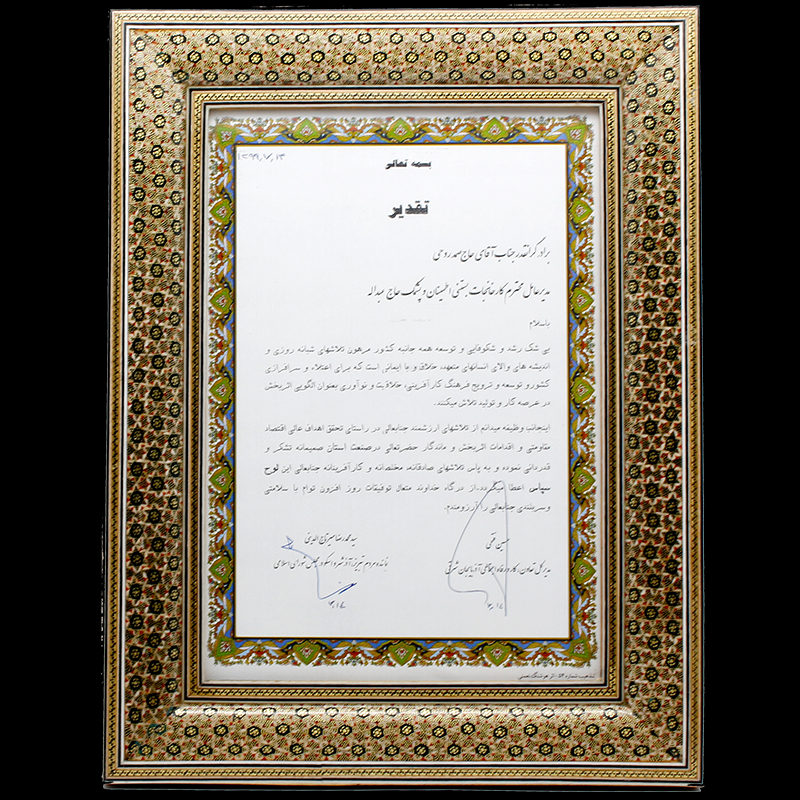 بسمه تعالی
تقدیر
برادر گرانقدر جناب آقای حاج صمد روحی
مدیرعامل محترم کارخانجات بستنی اطمینان و پشمک حاج عبداله
باسلام
بی شک رشد و شکوفایی و توسعه همه جانبه کشور مرهون تلاشهای شبانه روزی و
اندیشه های والای انسانهای متعهد، خلاق و با ایمانی است که برای اعتلاء و سرافرازی
کشور و توسعه و ترویج فرهنگ کارآفرینی، خلاقیت و نوآوری بعنوان الگویی اثربخش
در عرصه کار و تولید تلاش میکنند.
اینجانب وظیفه میدانم از تلاشهای ارزشمند جنابعالی در راستای تحقق اهداف عالی اقتصاد
مقاومتی و اقدامات اثربخش و ماندگار حضرتعالی درصنعت استان صمیمانه تشکر و
قدردانی نموده و به پاس تلاشهای صادقانه، مخلصانه و کارآفرینانه جنابعالی این لوح
سپاس اعطا میگردد.از درگاه خداوند متعال توفیقات روز افزون توام با سلامتی
وسربلندی جنابعالی را آرزومندم.
حسین فتحی
مدیرکل تعاون، کار و رفاه اجتماعی آذربایجان شرقی
سید محمدرضا میرتاج الدینی
نماینده مردم تبریز، آذرشهر و اسکو در مجلس شورای اسلامی